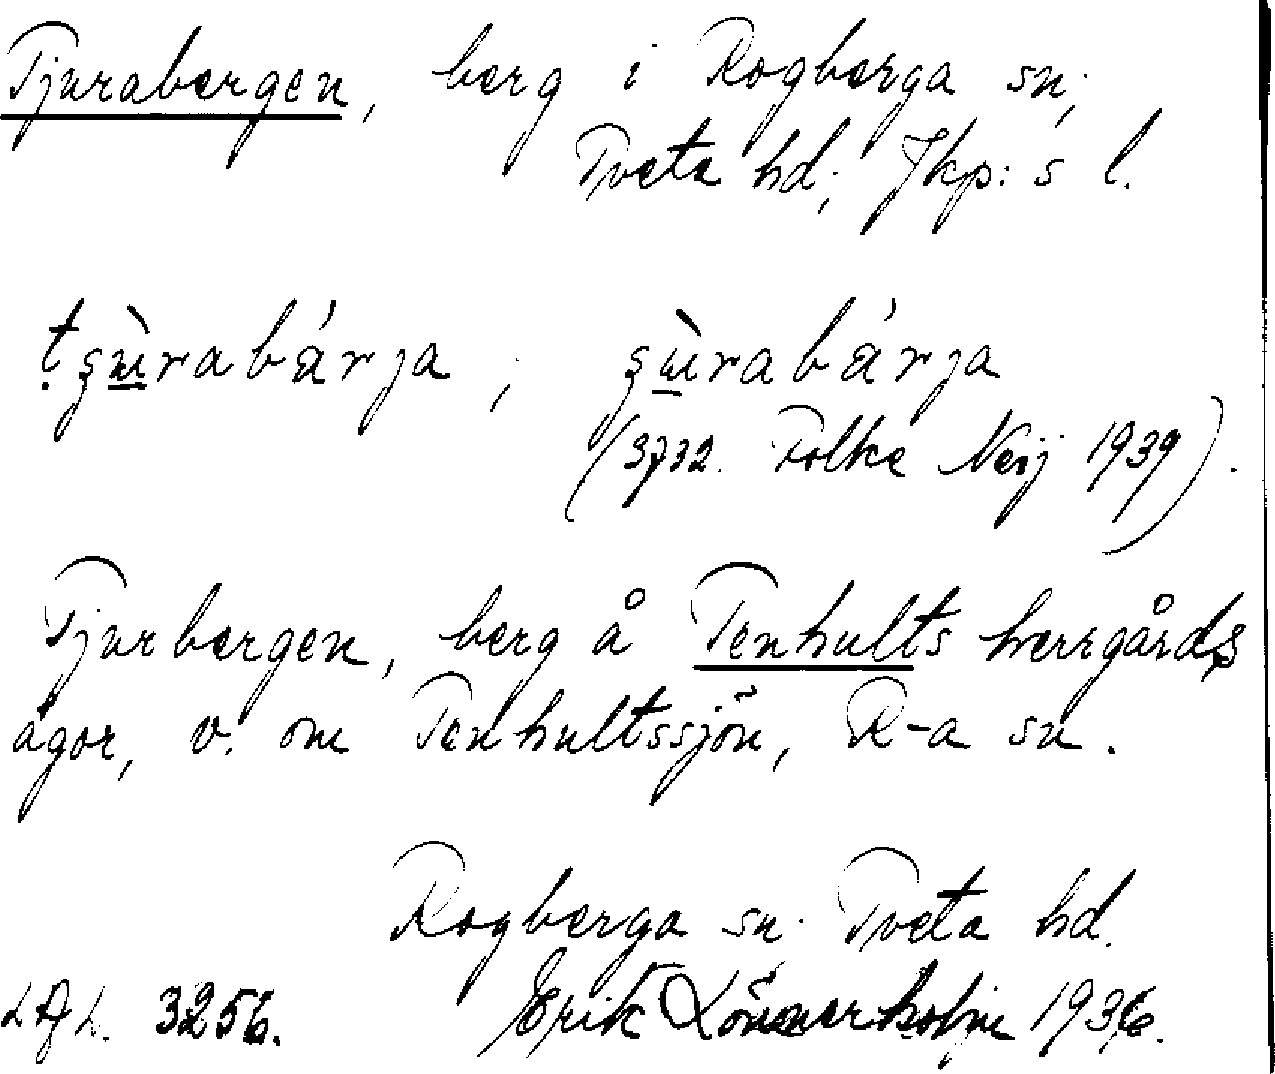 Tjurabergen, berg i Rogberga sn;
Tveta hd; Jkp: s l.
tşùrabárja ; şùrabárja
(3732. Folke Neij 1939).
Tjurbergen, berg å Tenhults herrgårds
ägor, v. om Tenhultssjön, R-a sn.
Rogberga sn. Tveta hd.
3256. Erik Lönnerholm 1936.